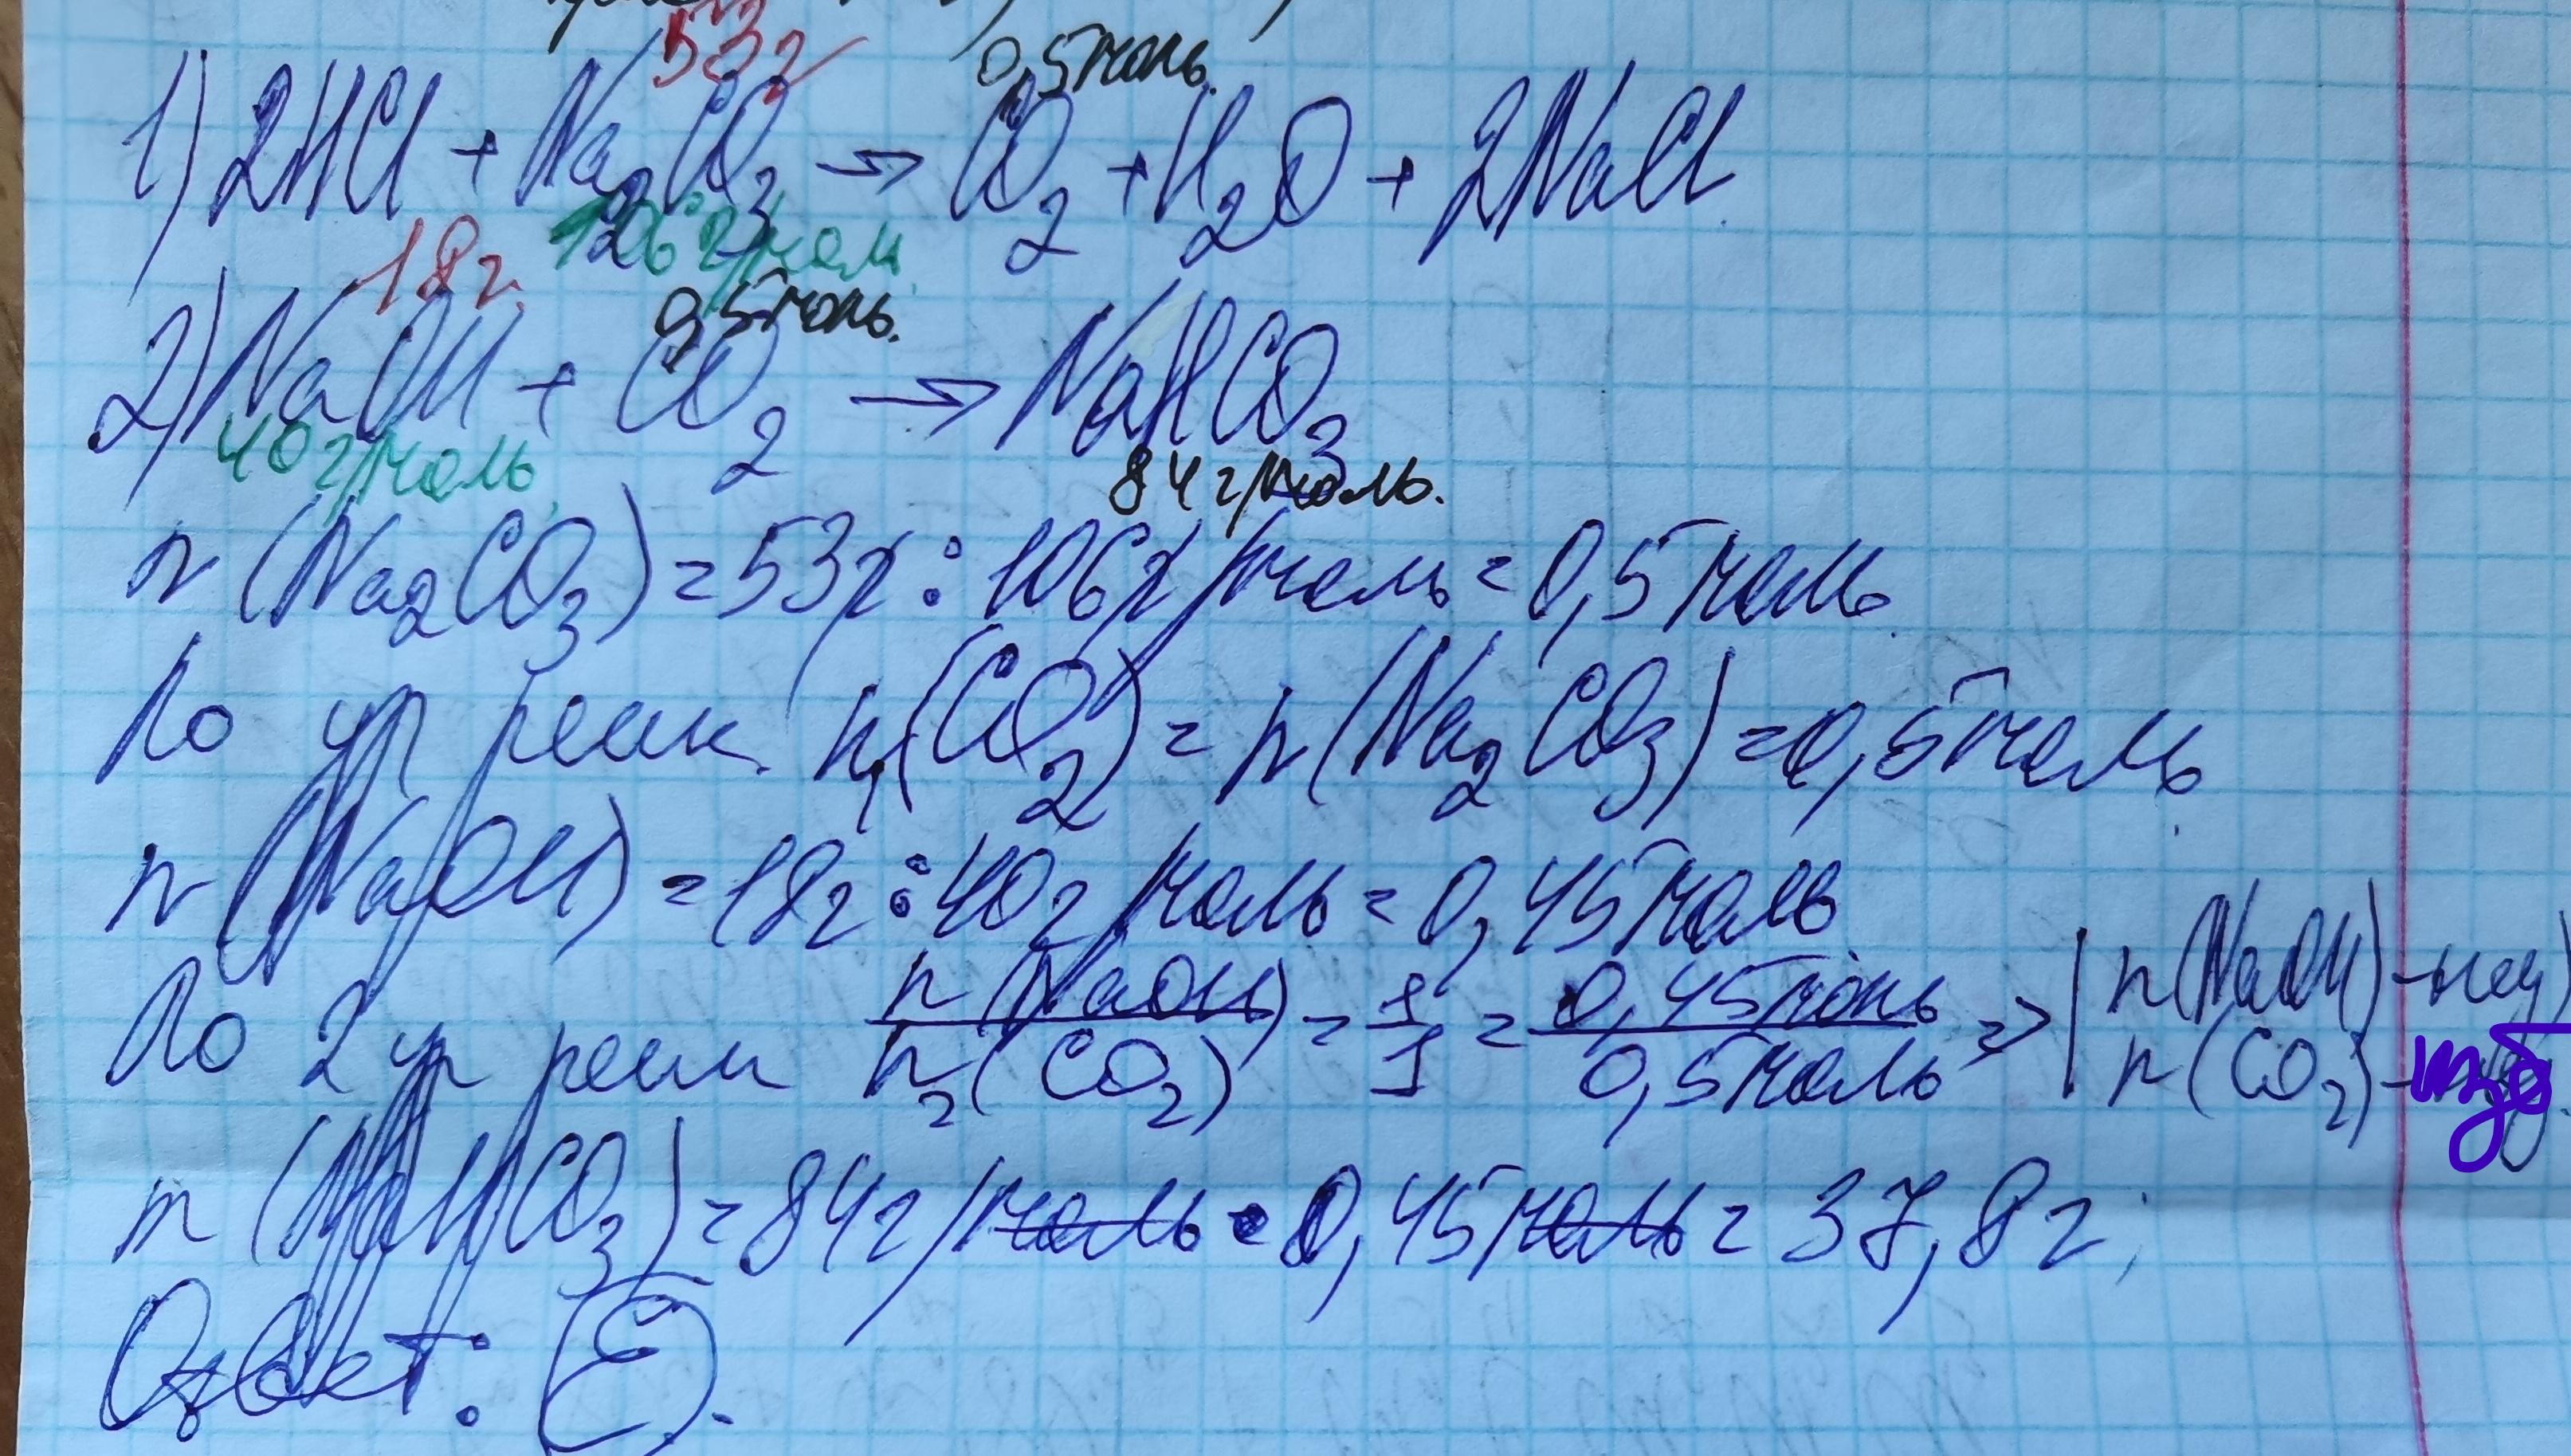 53г 0,5моль.
1) 2HCl + Na2CO3 → CO2 + H2O + 2NaCl
18г. 106г/моль
0,5моль.
2) NaOH + CO2 → NaHCO3
40г/моль 84г/моль.
n (Na2CO3) = 53г : 106г/моль = 0,5моль
По ур реак n1(CO2) = n (Na2CO3) = 0,5моль
n (NaOH) = 18г : 40г/моль = 0,45моль
По 2 ур реак n (NaOH) / n2(CO2) = 1/1 = 0,45моль / 0,5моль => | n(NaOH) - нед
n(CO2) - изб
m (NaHCO3) = 84г/моль • 0,45моль = 37,8г;
Ответ: E.